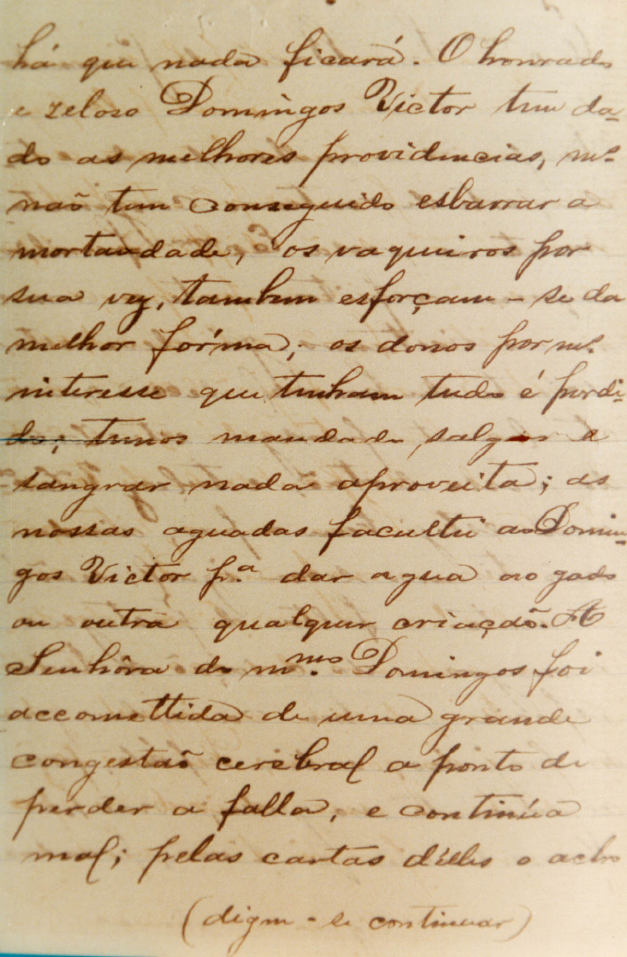 há que nada ficará. O honrado
e zeloso Domingos Victor tem da-
do as melhores providencias, mª
naõ tem conseguido esbarrar a
mortandade, os vaqueiros por
sua vez, tambem esforçam-se da
melhor fórma, os donos por mª
interesse que tenham tudo é perdi-
do; temos mandado salgar e
sangrar nada aproveita; as
nossas aguadas facultei ao Domin-
gos Victor pª dar agua ao gado
ou outra qualquer criaçaõ. A
Senhôra do mmº Domingos foi
accomettida de uma grande
congestaõ cerebral a ponto de
perder a falla, e continúa
mal; pelas cartas d'elles o acho
(digne-se continuar)